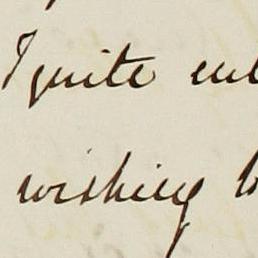 I quite
wishing